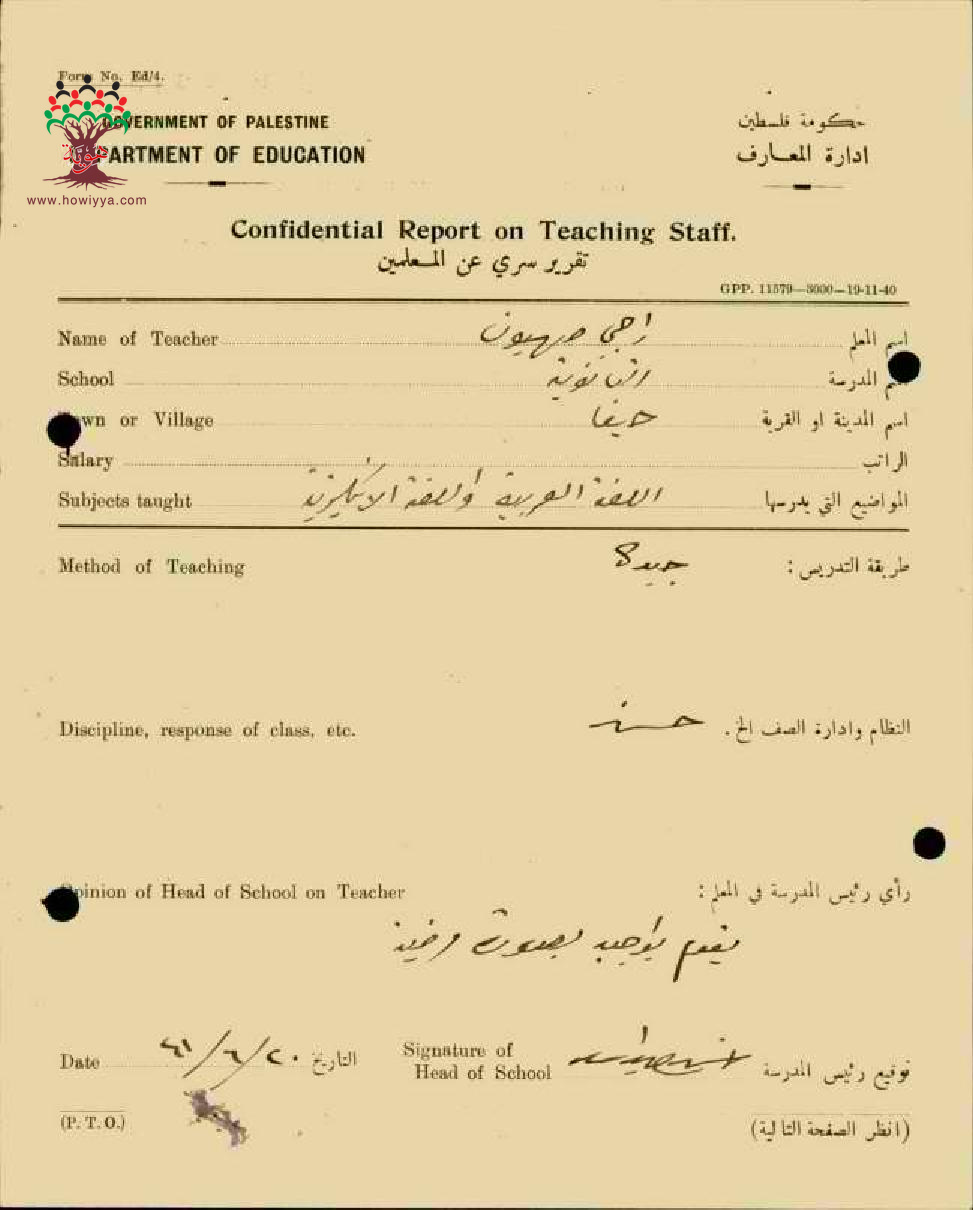 Form No. Ed/4.
GOVERNMENT OF PALESTINE
حكومة فلسطين
DEPARTMENT OF EDUCATION
ادارة المعارف
www.howiyya.com
Confidential Report on Teaching Staff.
تقرير سري عن المعلمين
GPP. 11579—3000—19-11-40
Name of Teacher راجي صهيون اسم المعلم
School الثانوية اسم المدرسة
Town or Village حيفا اسم المدينة او القرية
Salary الراتب
Subjects taught اللغة العربية واللغة الانكليزية المواضيع التي يدرسها
Method of Teaching جيدة طريقة التدريس :
Discipline, response of class, etc. حسنة النظام وادارة الصف الخ .
Opinion of Head of School on Teacher رأي رئيس المدرسة في المعلم :
يقوم بواجبه بصورة مرضية
Date ٢٠/٦/٤١ التاريخ Signature of
Head of School توقيع رئيس المدرسة
(P. T. O.) (انظر الصفحة التالية)